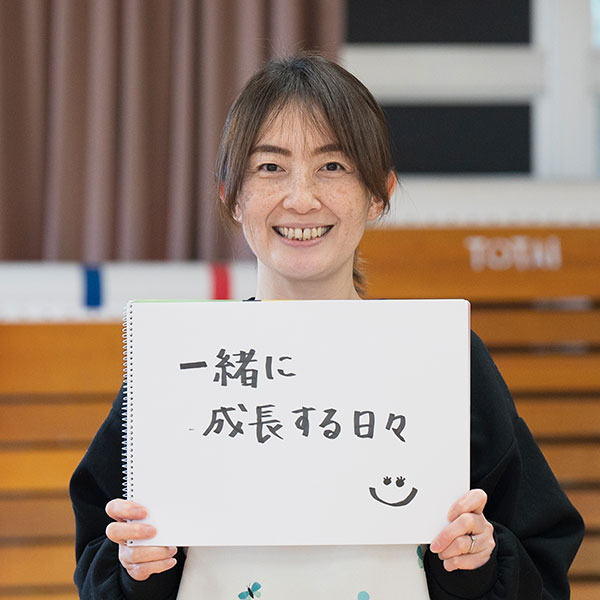 TOTAI
一緒に
成長する日々